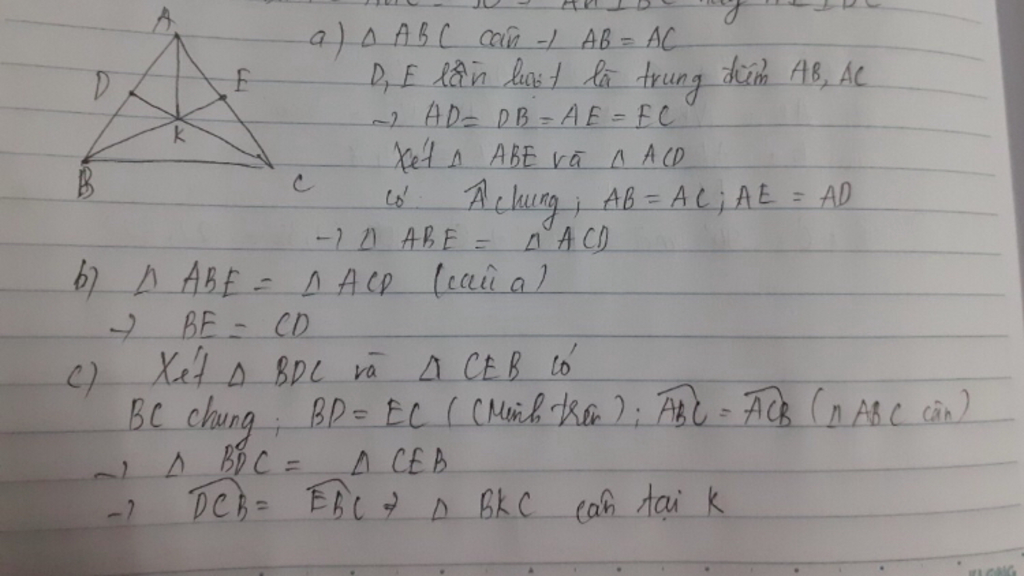 A
D
E
K
B
C
a) Δ ABC cân → AB = AC
D, E lần lượt là trung điểm AB, AC
→ AD = DB = AE = EC
Xét Δ ABE và Δ ACD
có Â chung; AB = AC; AE = AD
→ Δ ABE = Δ ACD
b) Δ ABE = Δ ACD (câu a)
→ BE = CD
c) Xét Δ BDC và Δ CEB có
BC chung; BD = EC (CMinh trên); ABC = ACB (Δ ABC cân)
→ Δ BDC = Δ CEB
→ DCB = EBC → Δ BKC cân tại K